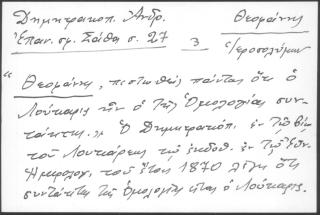 Δημητρακοπ. Ἀνδρ. Θεοφάνης
Ἐπαν. σφ. Σάθα σ. 27 3 Ἱεροσολύμων
"Θεοφάνης, πεισθεὶς πάντως ὅτι ὁ
Λούκαρις ἦν ὁ τῆς Ὁμολογίας συν-
τάκτης." Ὁ Δημητρακόπ. ἐν τῷ βίῳ
τοῦ Λουκάρεως τῷ ἐκδοθ. ἐν τῷ Ἐθν.
Ἡμερολογ. τοῦ ἔτους 1870 λέγει ὅτι
συντάκτης τῆς Ὁμολογίας εἶναι ὁ Λούκαρις.